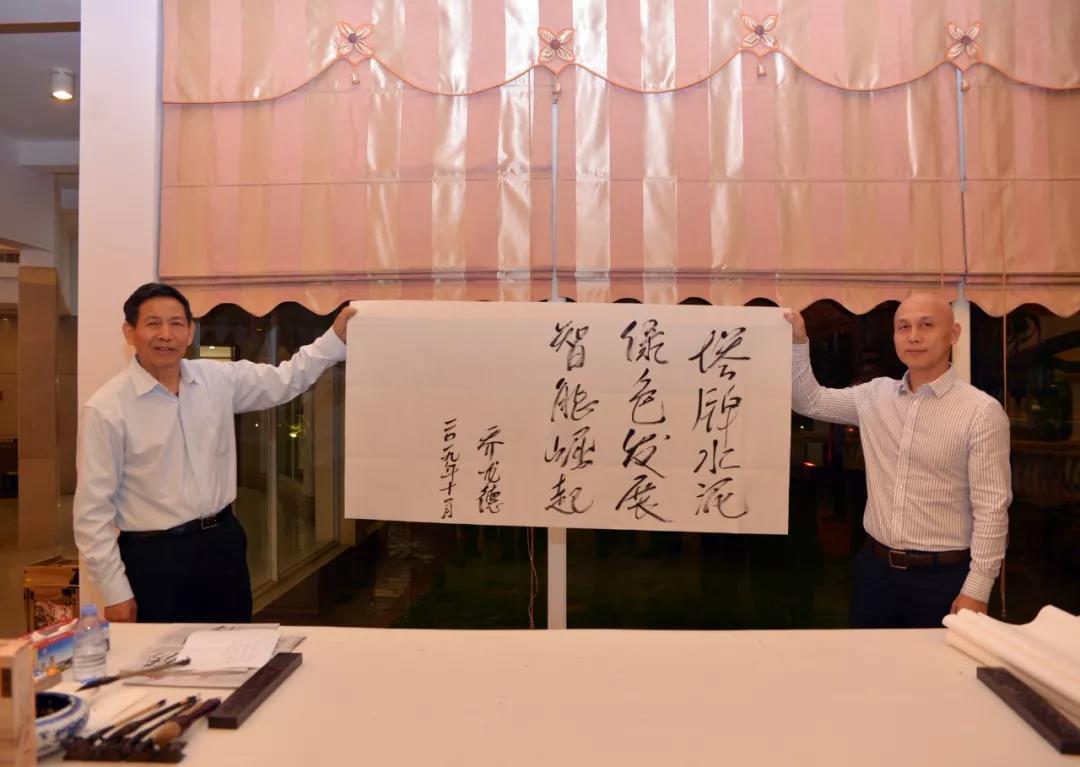 塔牌水泥
绿色发展
智能崛起
乔龙德
二〇一九年十月